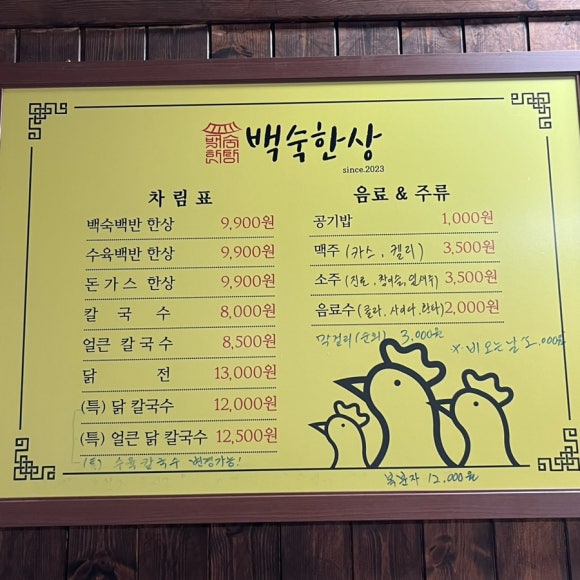 백숙한상
since.2023
차 림 표
백숙백반 한상 9,900원
수육백반 한상 9,900원
돈가스 한상 9,900원
칼 국 수 8,000원
얼큰 칼국수 8,500원
닭 전 13,000원
(특) 닭 칼국수 12,000원
(특) 얼큰 닭 칼국수 12,500원
(특) 수육칼국수 변경가능!
음료 & 주류
공기밥 1,000원
맥주 (카스, 켈리) 3,500원
소주 (진로, 참이슬, 잎새주) 3,500원
음료수 (콜라, 사이다, 환타) 2,000원
막걸리 3,000원
x 비오는날
복분자 12,000원